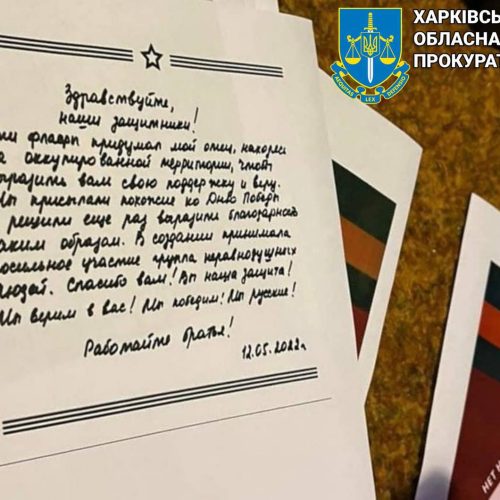 ХАРКІВСЬ
ОБЛАСНА
ПРОКУРАТ
AEQUITAS LEX DEFENSIO
Здравствуйте,
наши защитники!
флаеры придумал мой отец, находясь
а оккупированной территории, чтобы
выразить вам свою поддержку и веру.
Мы присылали похожие ко Дню Победы
решили еще раз выразить благодарность
аким образом. В создании принимала
осильное участие группа неравнодушных
людей. Спасибо вам! Вы наша защита!
Мы верим в вас! Мы победим! Мы русские!
Работайте братья!
12.05.2022г
НЕТ Н